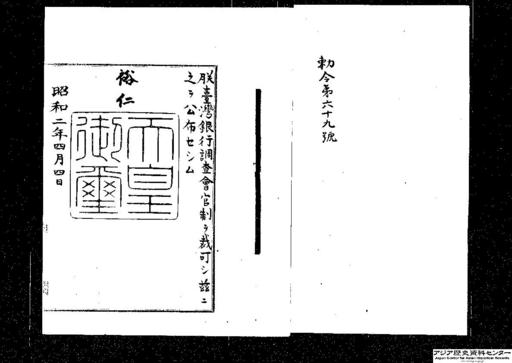 勅令第六十九號
朕臺灣銀行調査會官制ヲ裁可シ茲ニ
之ヲ公布セシム
裕仁
天皇御璽
昭和二年四月四日
アジア歴史資料センター
Japan Center for Asian Historical Records